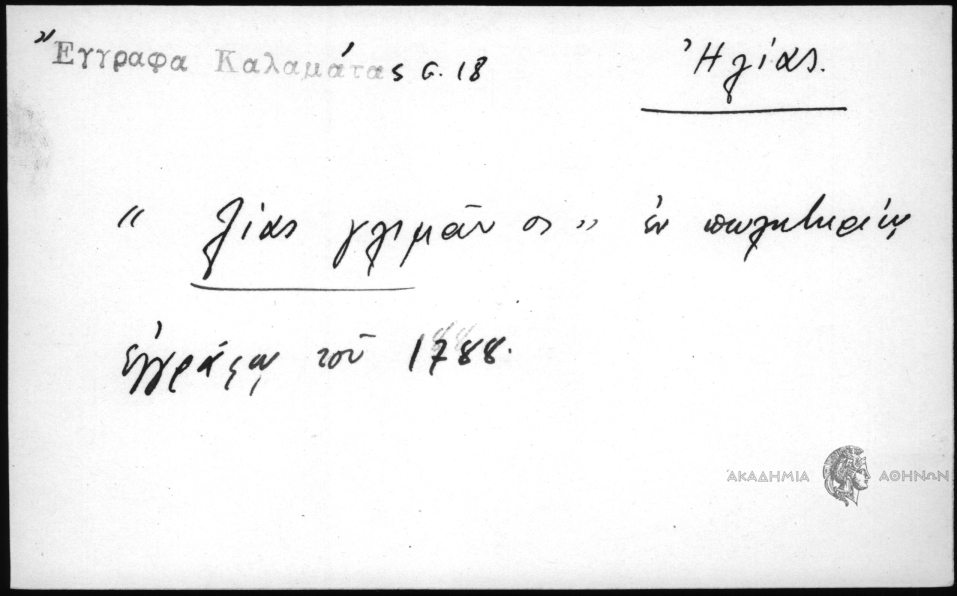 Ἔγγραφα Καλαμάτας σ. 18
Ἠλίας.
“ λίας γλιμᾶνος ” ἐν πωλητηρίῳ
ἐγγράφῳ τοῦ 1788.
ΑΚΑΔΗΜΙΑ ΑΘΗΝΩΝ